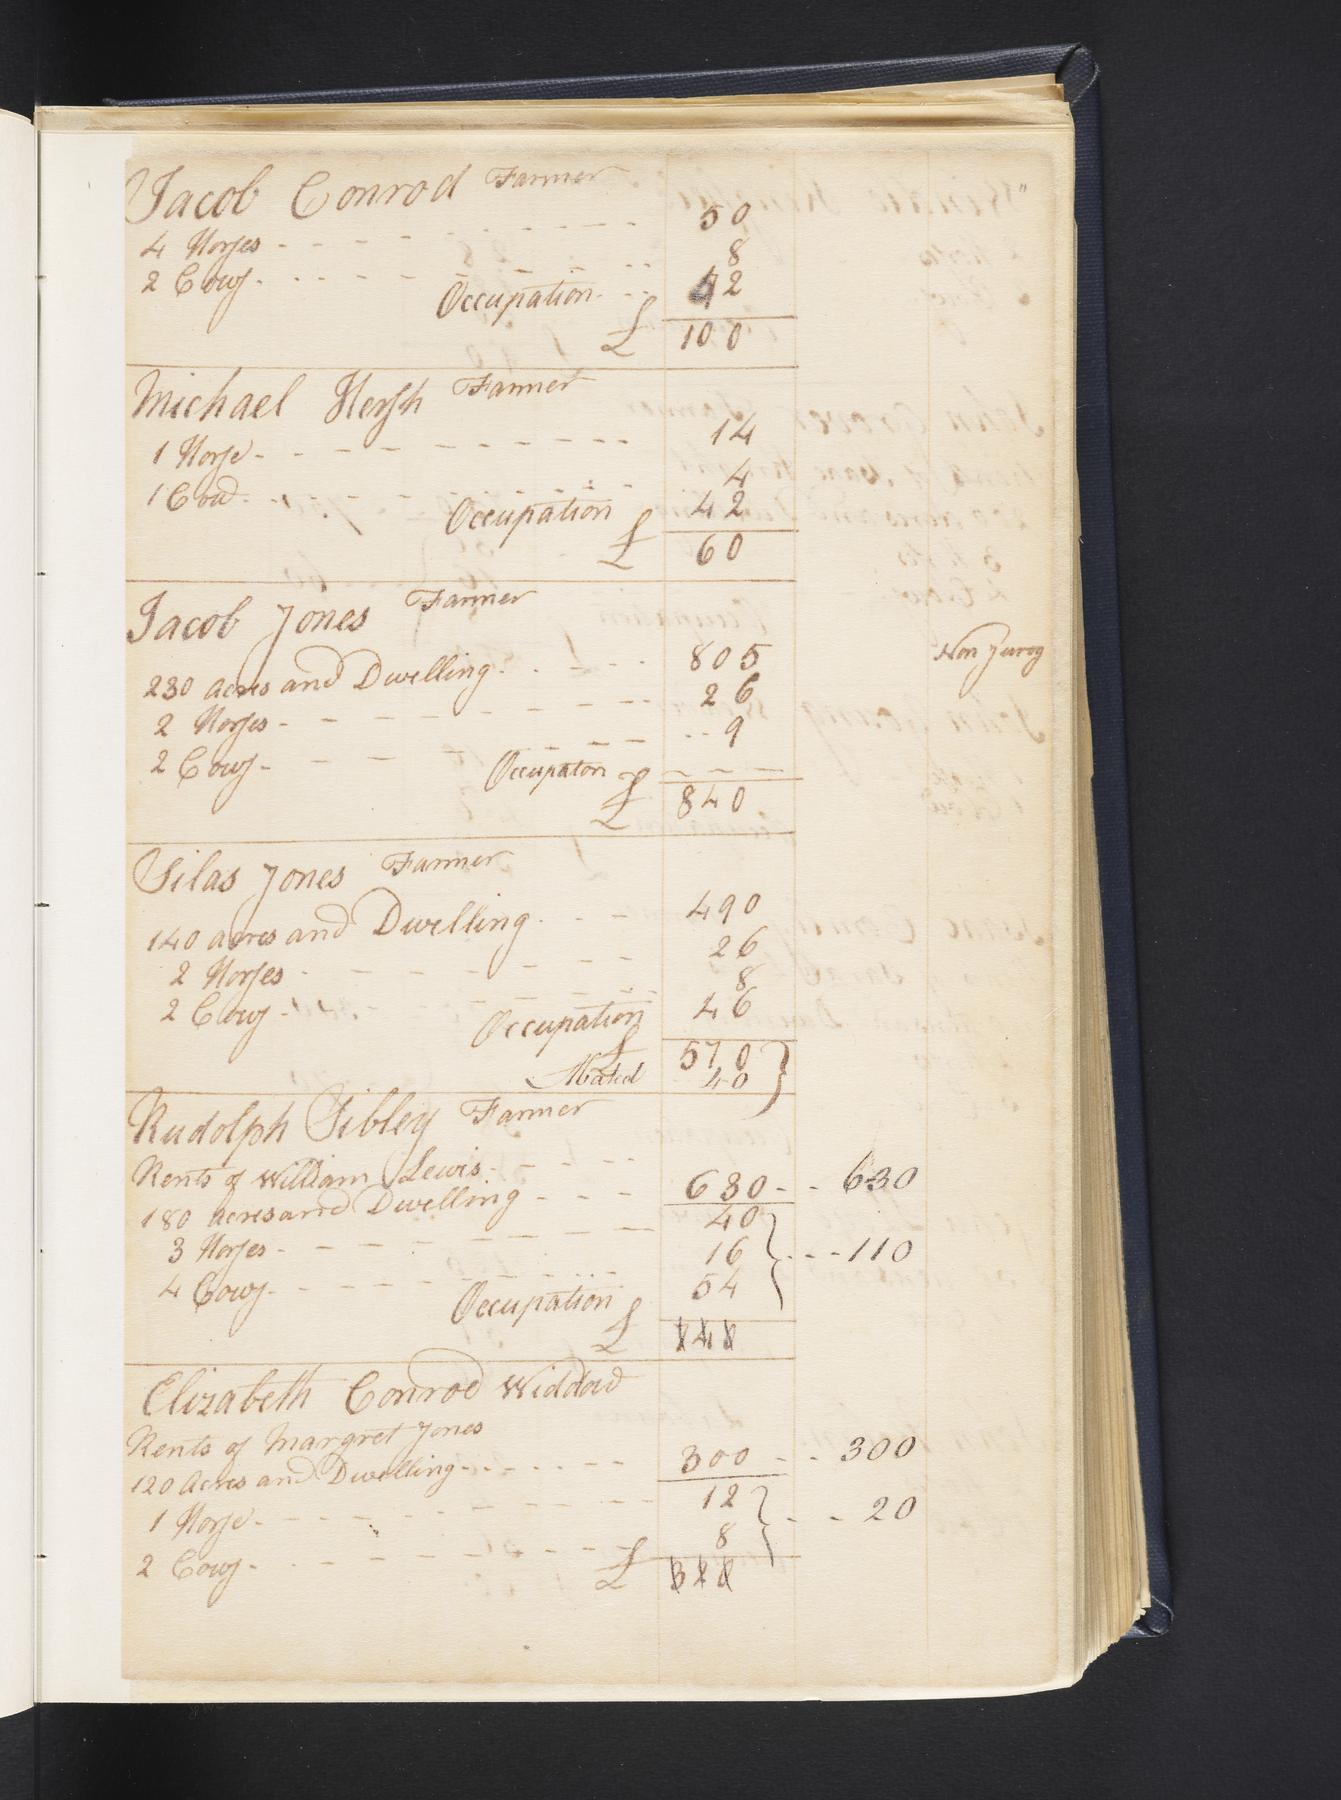 Jacob Conrod Farmer
4 Horses - - - - - - - - 50
2 Cows - - - - - - - - 8
Occupation 42
£ 100
Michael Hersh Farmer
1 Horse - - - - - - - - 14
1 Cow - - - - - - - - 4
Occupation 42
£ 60
Jacob Jones Farmer
230 Acres and Dwelling - - - 805 Non Juror
2 Horses - - - - - - - - 26
2 Cows - - - - - - - - 9
Occupaton - - -
£ 840
Silas Jones Farmer
140 acres and Dwelling - - - 490
2 Horses - - - - - - - - 26
2 Cows - - - - - - - - 8
Occupation 46
£ 570
Abated 40
Rudolph Sibley Farmer
Rents of William Lewis - - - -
180 Acres and Dwelling - - - 630 - - 630
3 Horses - - - - - - - - 40
4 Cows - - - - - - - - 16 - - - 110
Occupation 54
£
Elizabeth Conrod Widdow
Rents of Margret Jones
120 Acres and Dwelling - - - - - 300 - - 300
1 Horse - - - - - - - - 12
2 Cows - - - - - - - - 8 - - 20
£